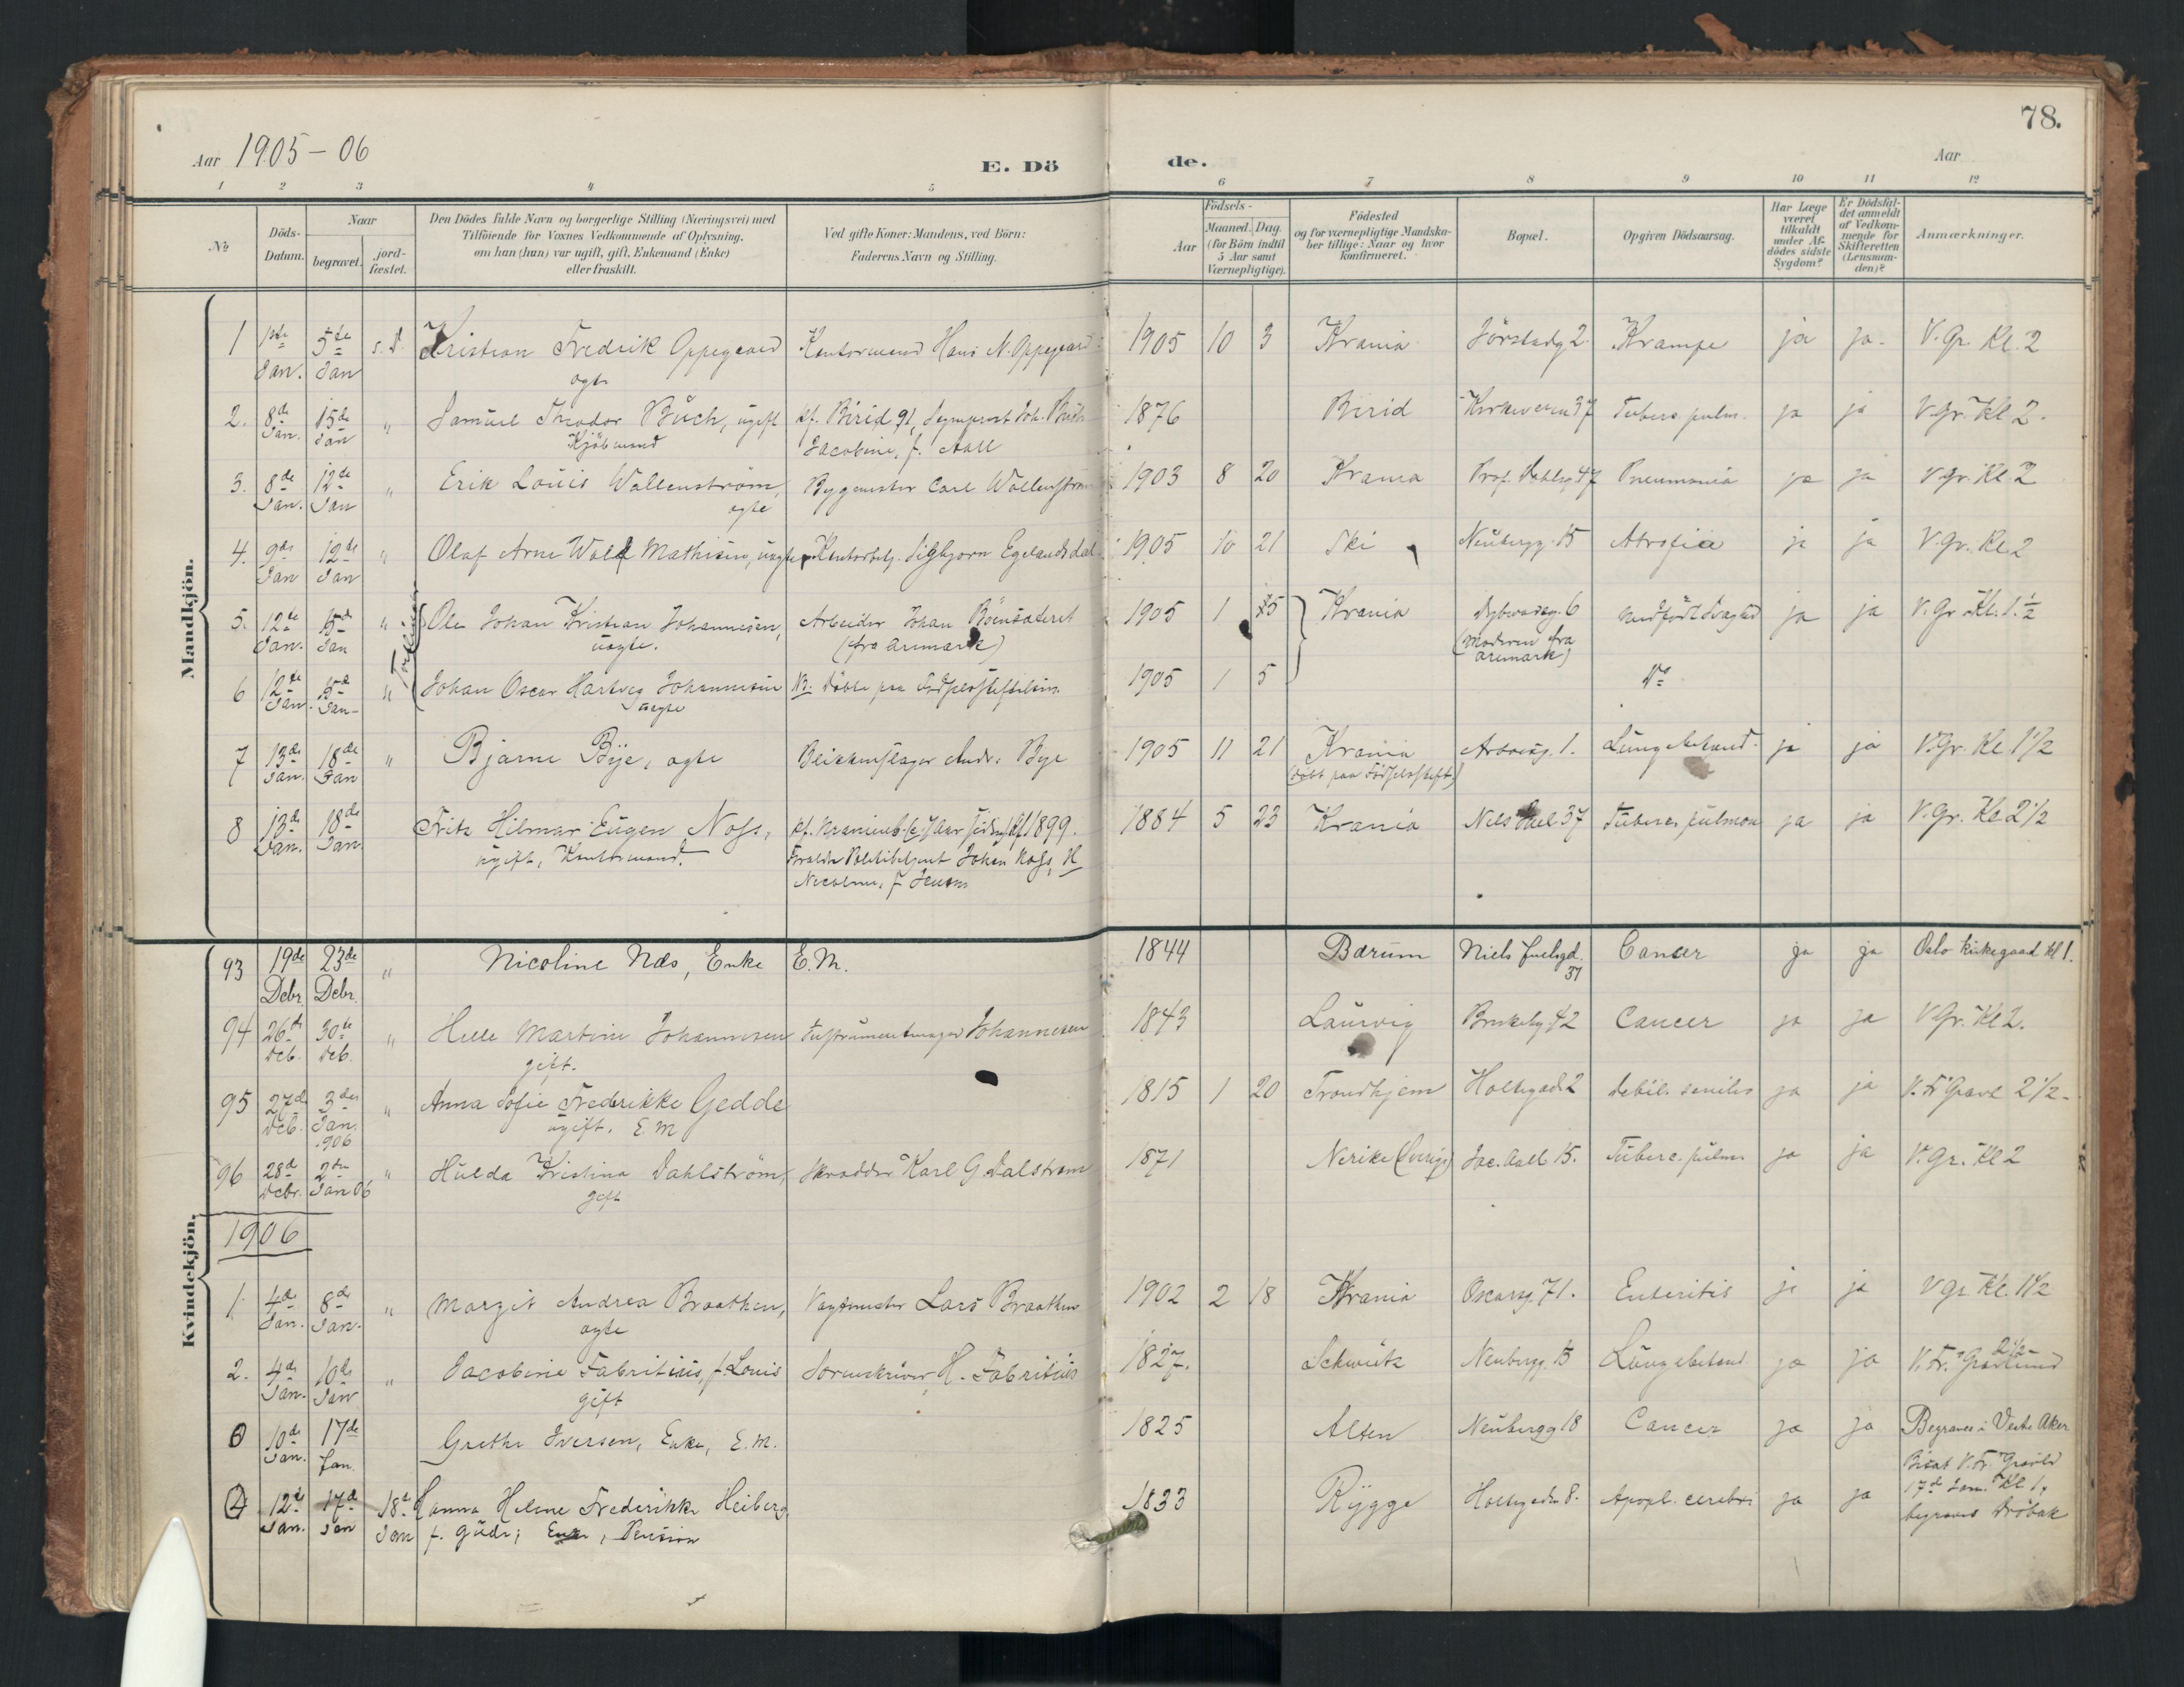 78.
Aar 1905-06
E. Dö de.
Aar
1 2 3 4 5 6 7 8 9 10 11 12
No
Döds-Datum.
Naar
begravet.
jord-fæstet.
Den Dödes fulde Navn og borgerlige Stilling (Næringsvei) med
Tilföiende for Voxnes Vedkommende af Oplysning,
om han (hun) var ugift, gift, Enkemand (Enke)
eller fraskilt.
Ved gifte Koner: Mandens, ved Börn:
Faderens Navn og Stilling.
Födsels-
Aar
Maaned. Dag.
(for Börn indtil
5 Aar samt
Værnepligtige).
Födested
og for værnepligtige Mandska-
ber tillige: Naar og hvor
konfirmeret.
Bopæl.
Opgiven Dödsaarsag.
Har Læge
været
tilkaldt
under Af-
dödes sidste
Sygdom?
Er Dödsfal-
det anmeldt
af Vedkom-
mende for
Skifteretten
(Lensman-
den)?
Anmærkninger.
Mandkjön.
1 1ste Jan. 5te Jan s. D. Kristian Fredrik Oppegaard Kontormand Hans N. Oppegaard 1905 10 3 Krania Jörstadg 2. Krampe ja ja V. Gr. Kl. 2
ægte
2. 8de Jan. 15de Jan " Samuel Theodor Buch, ugift kf. Birid 91, 1876 Birid Kirkeveien 37 Tuberc pulm. ja ja V. Gr. Kl 2.
Kjöbmand Jacobine, f. Aall
3. 8de Jan. 12de Jan " Erik Louis Wallenström, Bygmester Carl Wallenström 1903 8 20 Krania Prof. Dahlsg. 47 Pneumonia ja ja V. Gr. Kl. 2
ægte
4. 9de Jan 12te Jan " Olaf Arne Wold Mathisen, uægte Kontorbetj. Sigbjorn Egelandsdal 1905 10 21 Ski Neubergg. 15 Atrofia ja ja V. Gr. Kl. 2
5. 12te Jan. 15de Jan " Ole Johan Kristian Johannesen, Arbeider Johan 1905 1 5 Krania 6 Medfödt Svaghed ja ja V. Gr. Kl. 1 1/2
uægte. (fra Aremark) (Moderen fra Aremark)
6 12te Jan. 15de Jan. " Johan Oscar Hartvig Johannesen NB. Döbte paa Födselsstiftelsen. 1905 1 5 Do
uægte
7 13de Jan. 18de Jan " Bjarne Bye, ægte Blikkenslager Andr. Bye 1905 11 21 Krania 1. Lungebetænd. ja ja V. Gr. Kl. 1 1/2
(Döbt paa Födselsstift.)
8 13de Jan. 18de Jan. Fritz Hilmar Eugen Noss, 1899. 1884 5 23 Krania Niels Juel 37 Tuberc. pulmon ja ja V. Gr. Kl 2 1/2
ugift, Kontormand. Forældre Politibetjent Johan Noss, H
Nicoline, f Jensen
Kvindekjön.
93 19de Debr. 23de Debr. " Nicoline Næs, Enke E.M. 1844 Bærum Niels Juelsgd. 37 Cancer ja ja Oslo kirkegaard kl 1.
94 26de Deb. 30te Deb. " Helle Martine Johannesen Instrumentmager Johannesen 1843 Laurvig 42 Cancer ja ja V Gr. Kl 2.
gift.
95 27de Deb. 3die Jan. 906 " Anna Sofie Frederikke Gedde 1815 1 20 Trondhjem Holtegade 2 Debil. senilis ja ja V. Fr Grave 2 1/2
ugift. E. M
96 28de Debr. 2den Jan 06 " Hulda Kristina Dahlström, Skrædder Karl G. Dalström 1871 Nerike (Sverige) Jac. Aall 15. Tuberc. pulm. ja ja V. Gr. Kl 2
gift
1906
1. 4de Jan. 8de Jan. " Margit Andrea Braathen, Vagtmester Lars Braathen 1902 2 18 Krania Oscarsg. 71. Enteritis ja ja V Gr. Kl. 1 1/2
ægte
2. 4de Jan. 10de Jan " Jacobine Fabritius, f. Louis Sorenskriver H. Fabritius 1827. Schweitz Neubergg. 15 Lungebetænd ja ja V. Fr. Gravlund 2 1/2
gift
3 10de Jan. 17de Jan. Grethe Iversen, Enke, E.M. 1825 Alten Neubergg 18 Cancer ja ja Begraves i Vestre Aker
4 12te Jan. 17de Jan 18de Jan Hanna Helene Frederikke Heiberg, 1833 Rygge Holtegaden 8. Apopl. cerebri ja ja Bisat V. Fr. Gravld
f. Gude; Enke, Pension 17de Jan. Kl 1,
begraves Dröbak